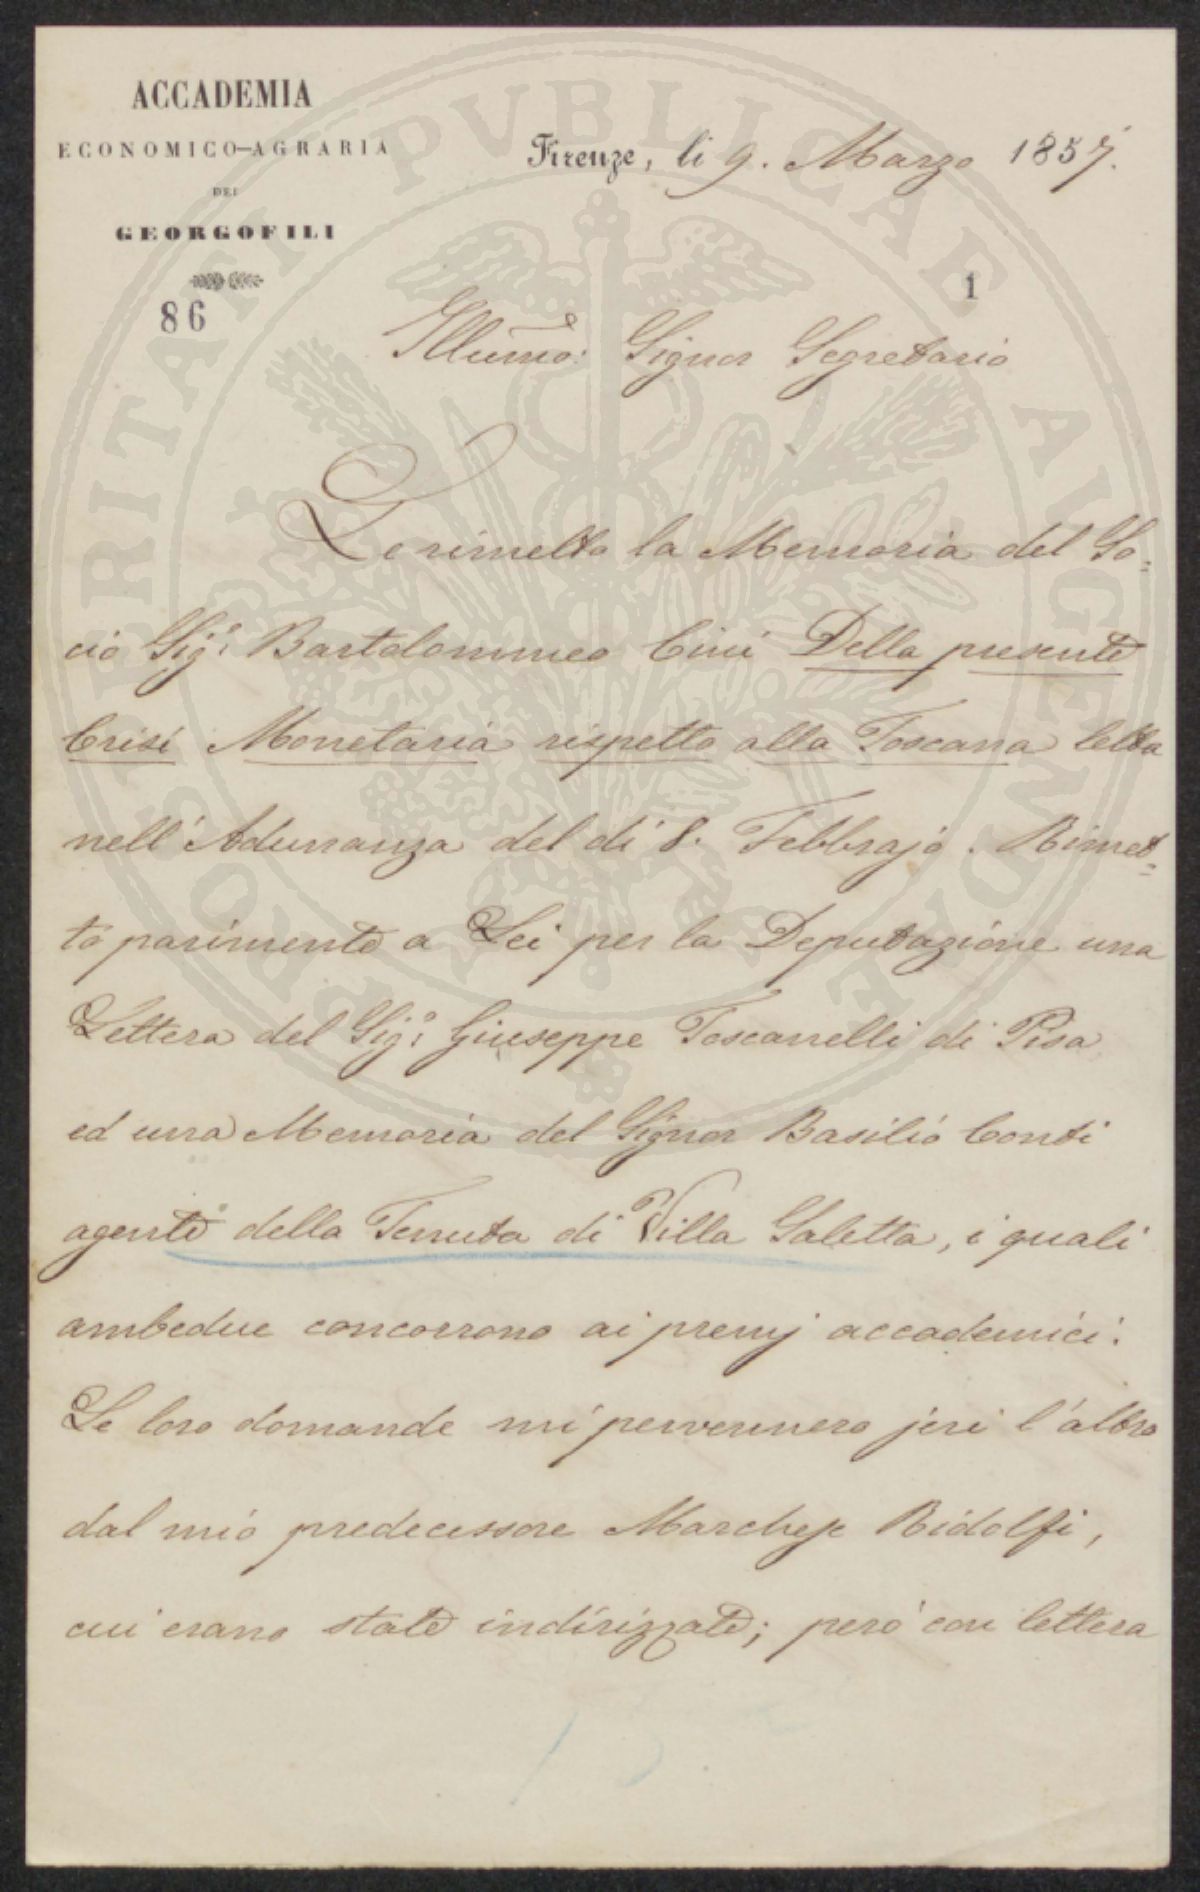 ACCADEMIA
ECONOMICO-AGRARIA
DEI
GEORGOFILI
86
Firenze, li 9. Marzo 1857.
1
Illumo: Signor Segretario
Le rimetto la Memoria del So=
cio Sigr. Bartolommeo Cini Della presente
Crisi Monetaria rispetto alla Toscana letta
nell'Adunanza del dì 8. Febbrajo. Rimet=
to parimente a Lei per la Deputazione una
Lettera del Sigr. Giuseppe Toscanelli di Pisa
ed una Memoria del Signor Basilio Conti
agente della Tenuta di Villa Saletta, i quali
ambedue concorrono ai premj accademici.
Le loro domande mi pervennero jeri l'altro
dal mio predecessore Marchese Ridolfi,
cui erano state indirizzate; però con lettera
PROSPERITATI PVBLICAE AVGENDAE